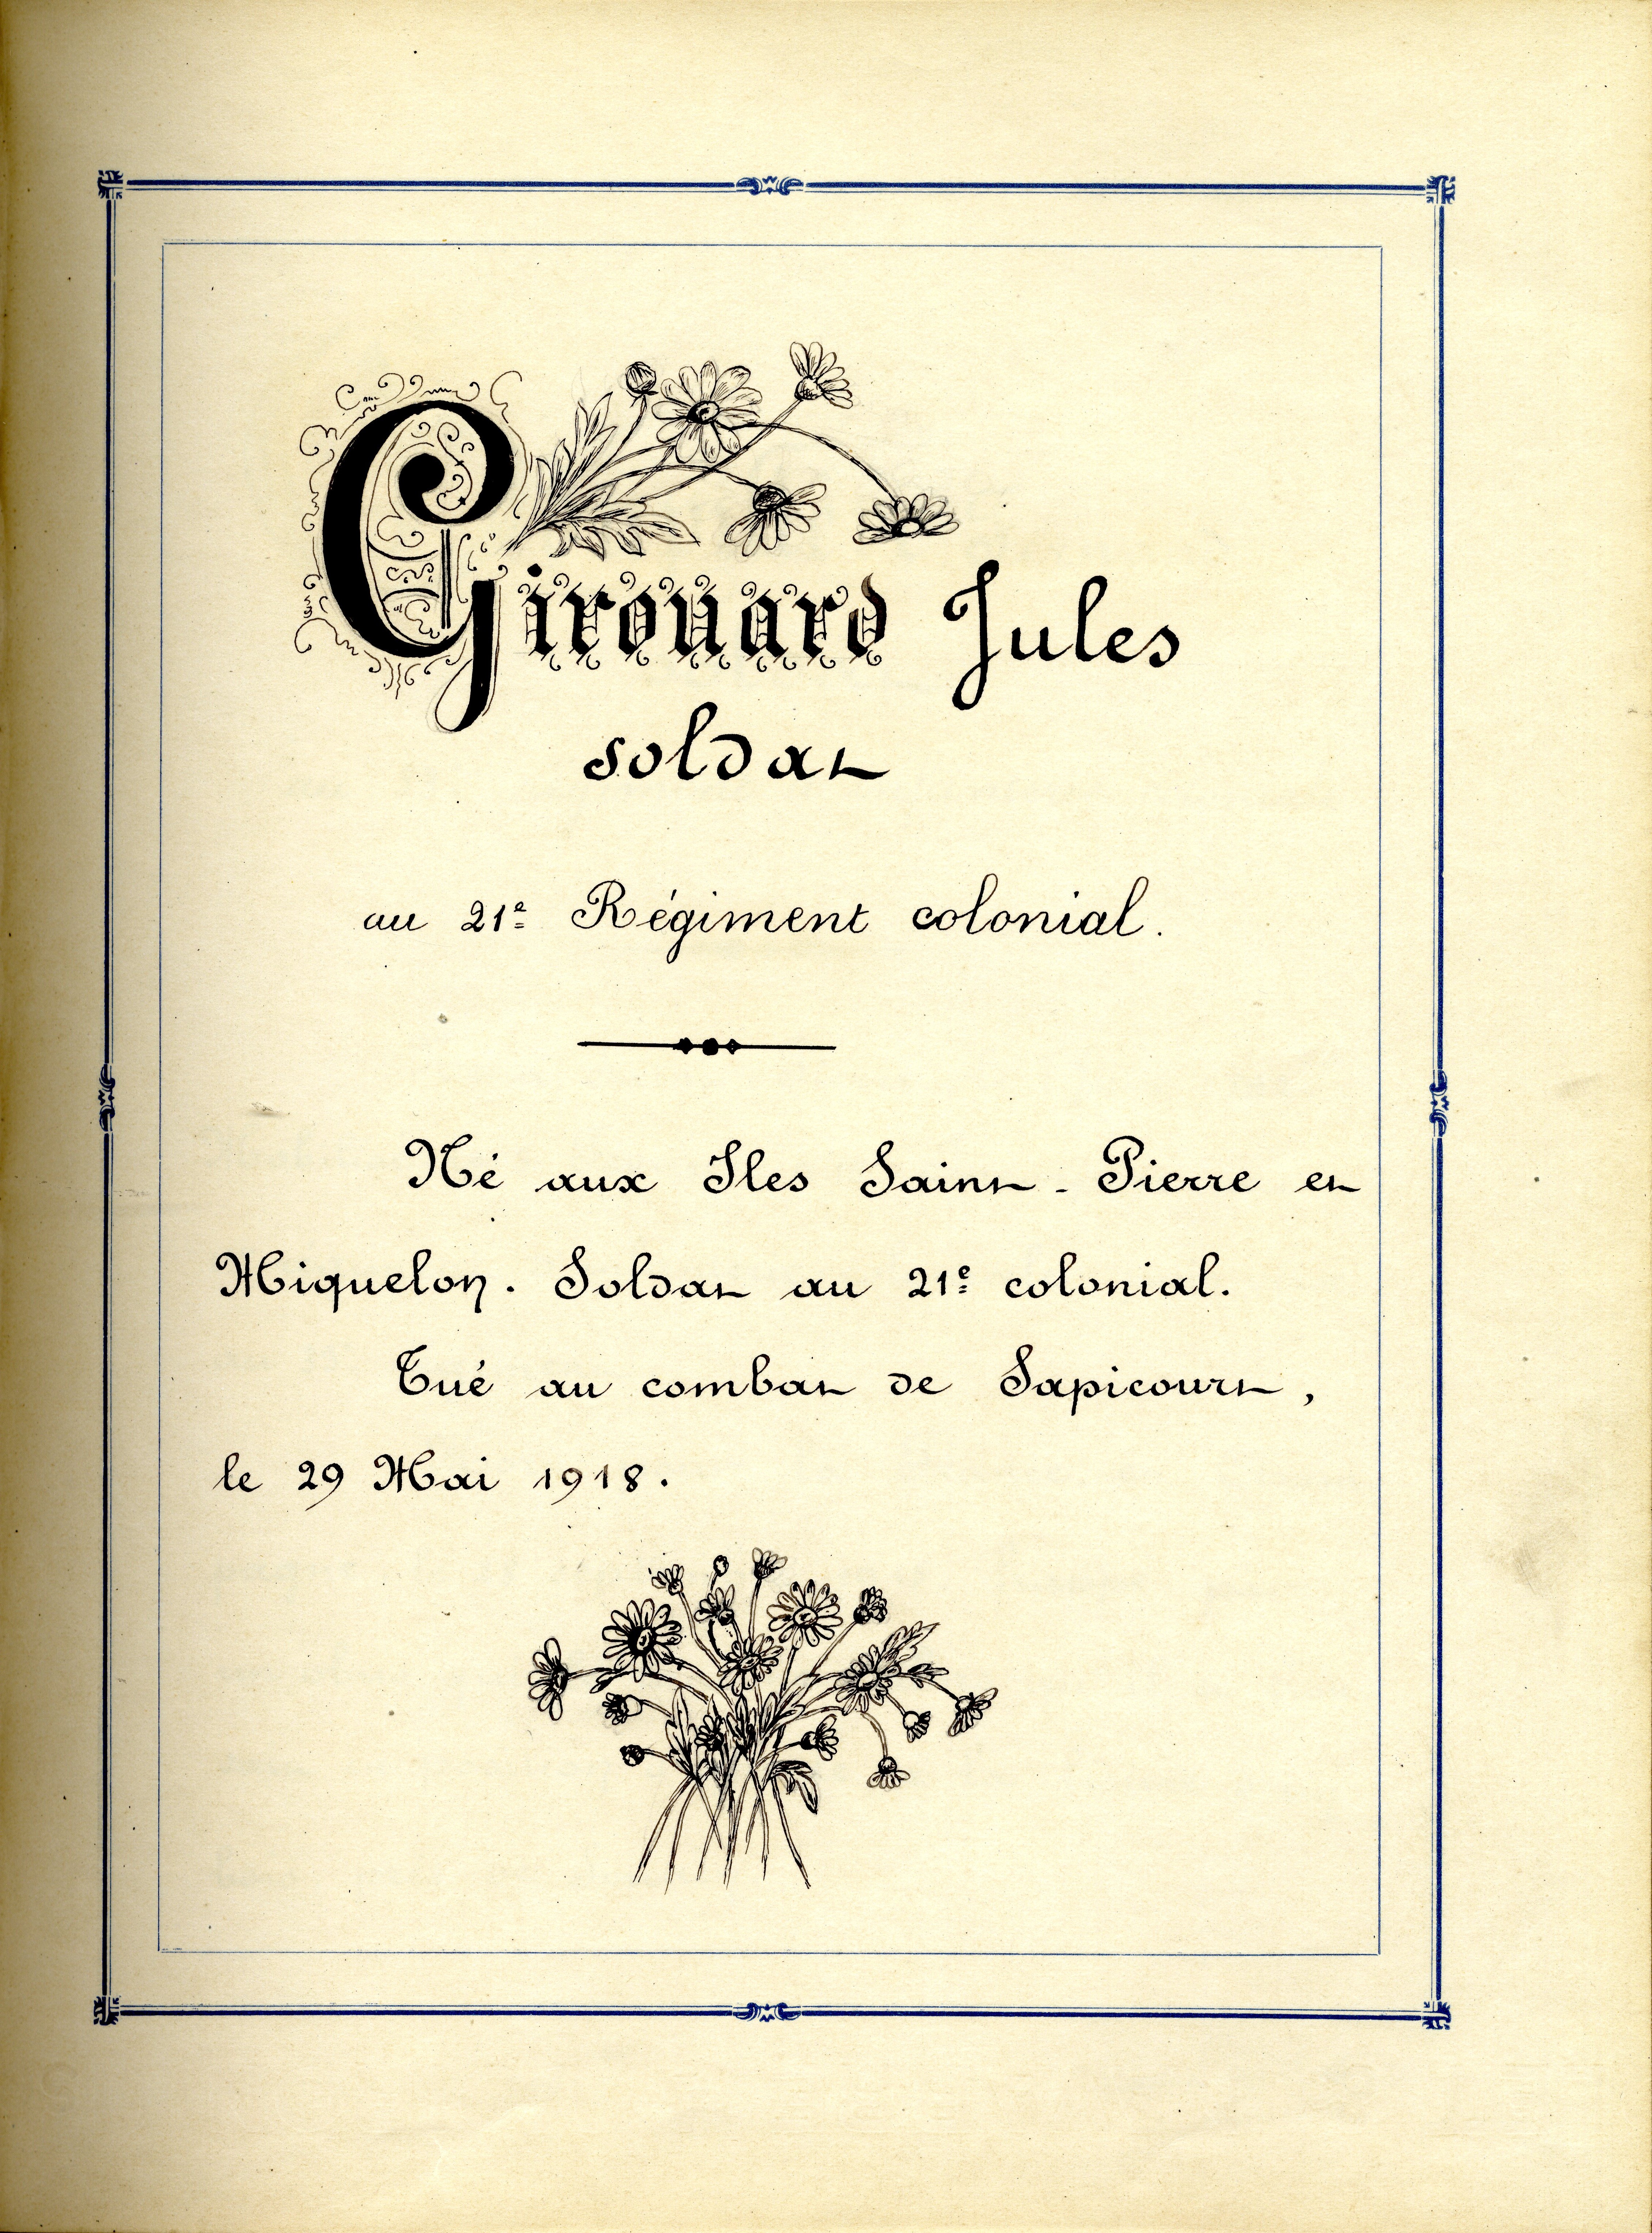 Girouard Jules
soldat
au 21e Régiment colonial.
Né aux Iles Saint-Pierre et
Miquelon. Soldat au 21e colonial.
Tué au combat de Sapicourt,
le 29 Mai 1918.